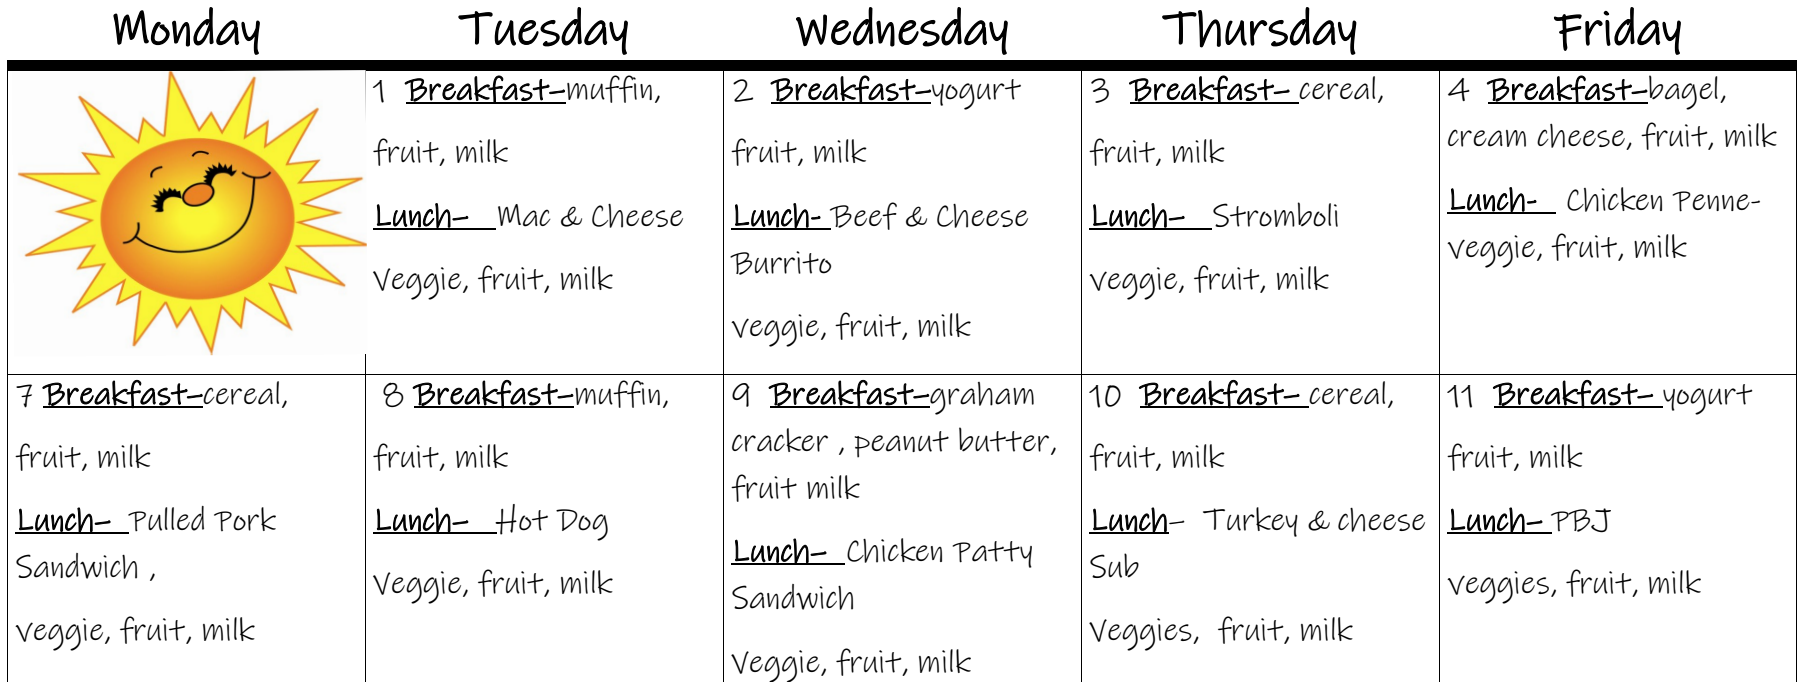 Monday Tuesday Wednesday Thursday Friday
1 Breakfast–muffin,
fruit, milk
Lunch– Mac & Cheese
Veggie, fruit, milk
2 Breakfast–yogurt
fruit, milk
Lunch- Beef & Cheese
Burrito
veggie, fruit, milk
3 Breakfast– cereal,
fruit, milk
Lunch– Stromboli
veggie, fruit, milk
4 Breakfast–bagel,
cream cheese, fruit, milk
Lunch- Chicken Penne-
veggie, fruit, milk
7 Breakfast–cereal,
fruit, milk
Lunch– Pulled Pork
Sandwich ,
veggie, fruit, milk
8 Breakfast–muffin,
fruit, milk
Lunch– Hot Dog
Veggie, fruit, milk
9 Breakfast–graham
cracker , peanut butter,
fruit milk
Lunch– Chicken Patty
Sandwich
Veggie, fruit, milk
10 Breakfast– cereal,
fruit, milk
Lunch– Turkey & cheese
Sub
Veggies, fruit, milk
11 Breakfast– yogurt
fruit, milk
Lunch– PBJ
veggies, fruit, milk